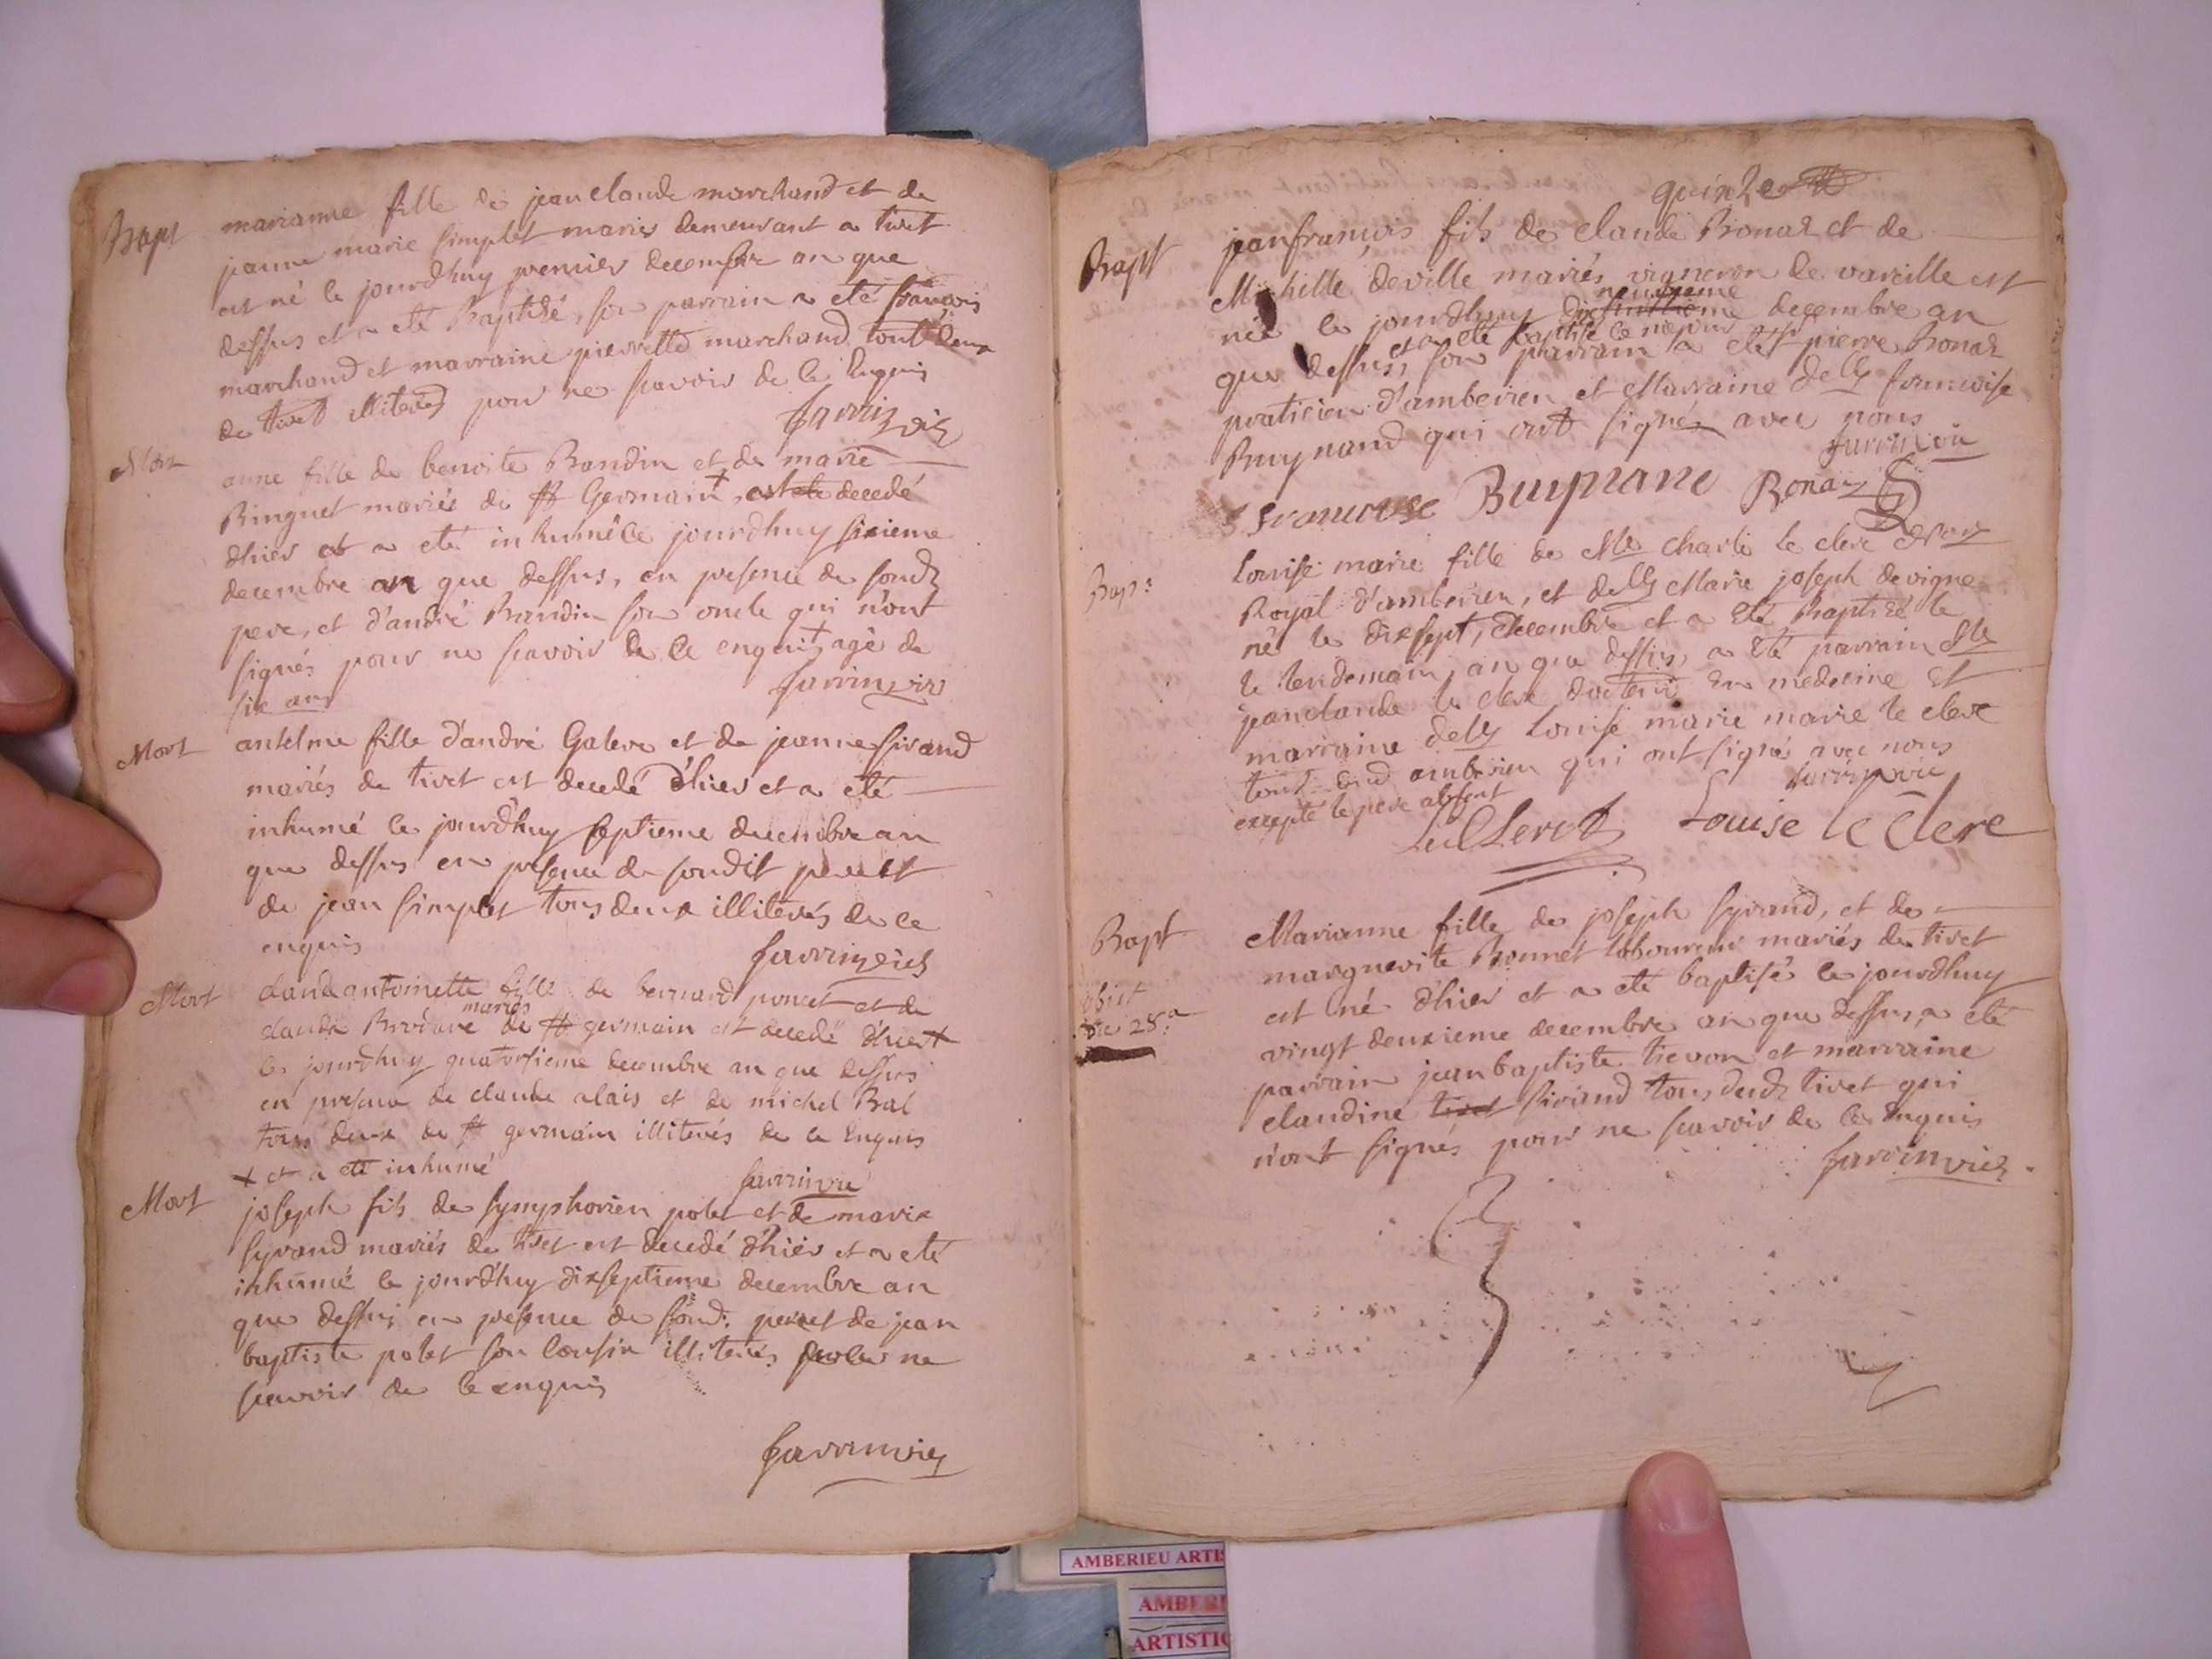 Bapt
marianne fille de jean claude marchand et de
jeanne marie simplet mariés demeurant a tiret
est né le jourdhuy premier decembre an que
dessus et a eté Baptisé, son parrain a eté francois
marchand et marraine pierrette marchand tout deux
de tiret illiterés pour ne scavoir de ce Enquis
Mort
anne fille de benoite Bandin et de marie
Binguet mariés de st Germain, est decedé
dhier et a eté inhumé ce jourdhuy sixieme
decembre an que dessus, en presence de sondt
pere, et d'andré Bandin son oncle qui n'ont
signés pour ne scavoir de ce enquis + agé de
six ans
Mort
antelme fille d'andré Galere et de jeanne sirand
mariés de tiret est decedé d'hier et a eté
inhumé le jourdhuy septieme decembre an
que dessus en presence de sondit pere et
de jean simplet tous deux illiterés de ce
enquis
Mort
claude antoinette fille de bernard poncet et de
mariés
claude de st germain est decedé d'hier +
le jourdhuy quatorsieme decembre an que dessus
en presence de claude alais et de michel Bal
tous deux de st germain illiterés de ce Enquis
+ et a eté inhumé
Mort
joseph fils de symphorien polet et de marie
syrand mariés de tiret est decedé d'hier et a eté
inhumé le jourd'huy dixseptieme decembre an
que dessus en presence de sond: pere et de jean
baptiste polet son cousin illiterés ne
scavoir de ce enquis
quinze
Bapt
jeanfrancois fils de claude Bonaz et de
Michelle deville mariés vigneron de vareille est
neuvieme
née le jourdhuy dix decembre an
et a eté baptisé le meme jour
que dessus, son parrain a eté sr pierre Bonaz
praticien d'amberieu et Marraine delle francoise
Buynand qui ont signés avec nous
francoise Buynand Bonaz
Bapt:
Louise marie fille de Mre Charle le clerc
Royal d'amberieu, et delle Marie joseph devigne
né le dixsept, decembre et a Eté Baptizé le
le lendemain, an que dessus, a Eté parrain
jeanclaude le clerc docteur En medecine Et
marraine delle Louise marie marie le clerc
tout dud amberieu qui ont signé avec nous
excepté le pere absent
LeClerc Louise le Clerc
Bapt
obiit
die 25a
Marianne fille de joseph syrand, et de
marguerite Bonnet laboureur mariés de tiret
est né d'hier et a eté baptisé le jourdhuy
vingt deuxieme decembre an que dessus, a eté
parrain jean baptiste tievon et marraine
claudine sirand tous dudt tiret qui
n'ont signés pour ne scavoir de ce Enquis
AMBERIEU ARTIS
AMBERI
ARTISTIQ